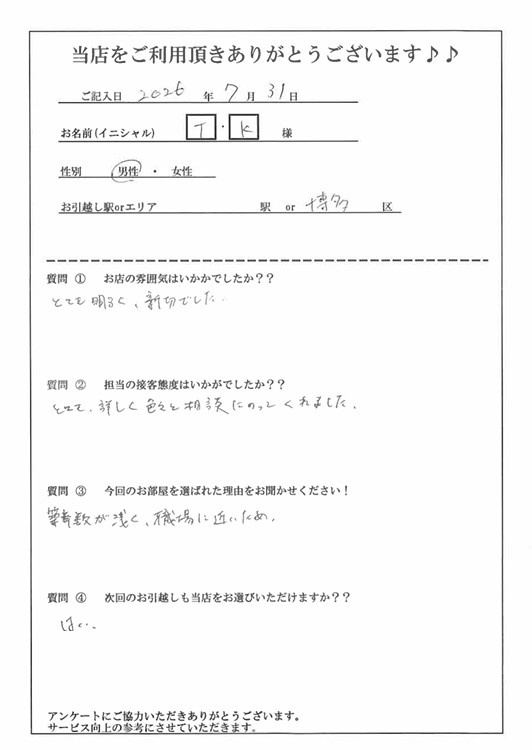 当店をご利用頂きありがとうございます♪♪
ご記入日 2026 年 7 月 31 日
お名前(イニシャル) T ・ K 様
性別 男性 ・ 女性
お引越し駅orエリア 駅 or 博多 区
質問 ① お店の雰囲気はいかがでしたか??
とても明るく、親切でした.
質問 ② 担当の接客態度はいかがでしたか??
とても、詳しく色々と相談にのってくれました.
質問 ③ 今回のお部屋を選ばれた理由をお聞かせください!
築年数が浅く、職場に近いため.
質問 ④ 次回のお引越しも当店をお選びいただけますか??
はい.
アンケートにご協力いただきありがとうございます。
サービス向上の参考にさせていただきます。